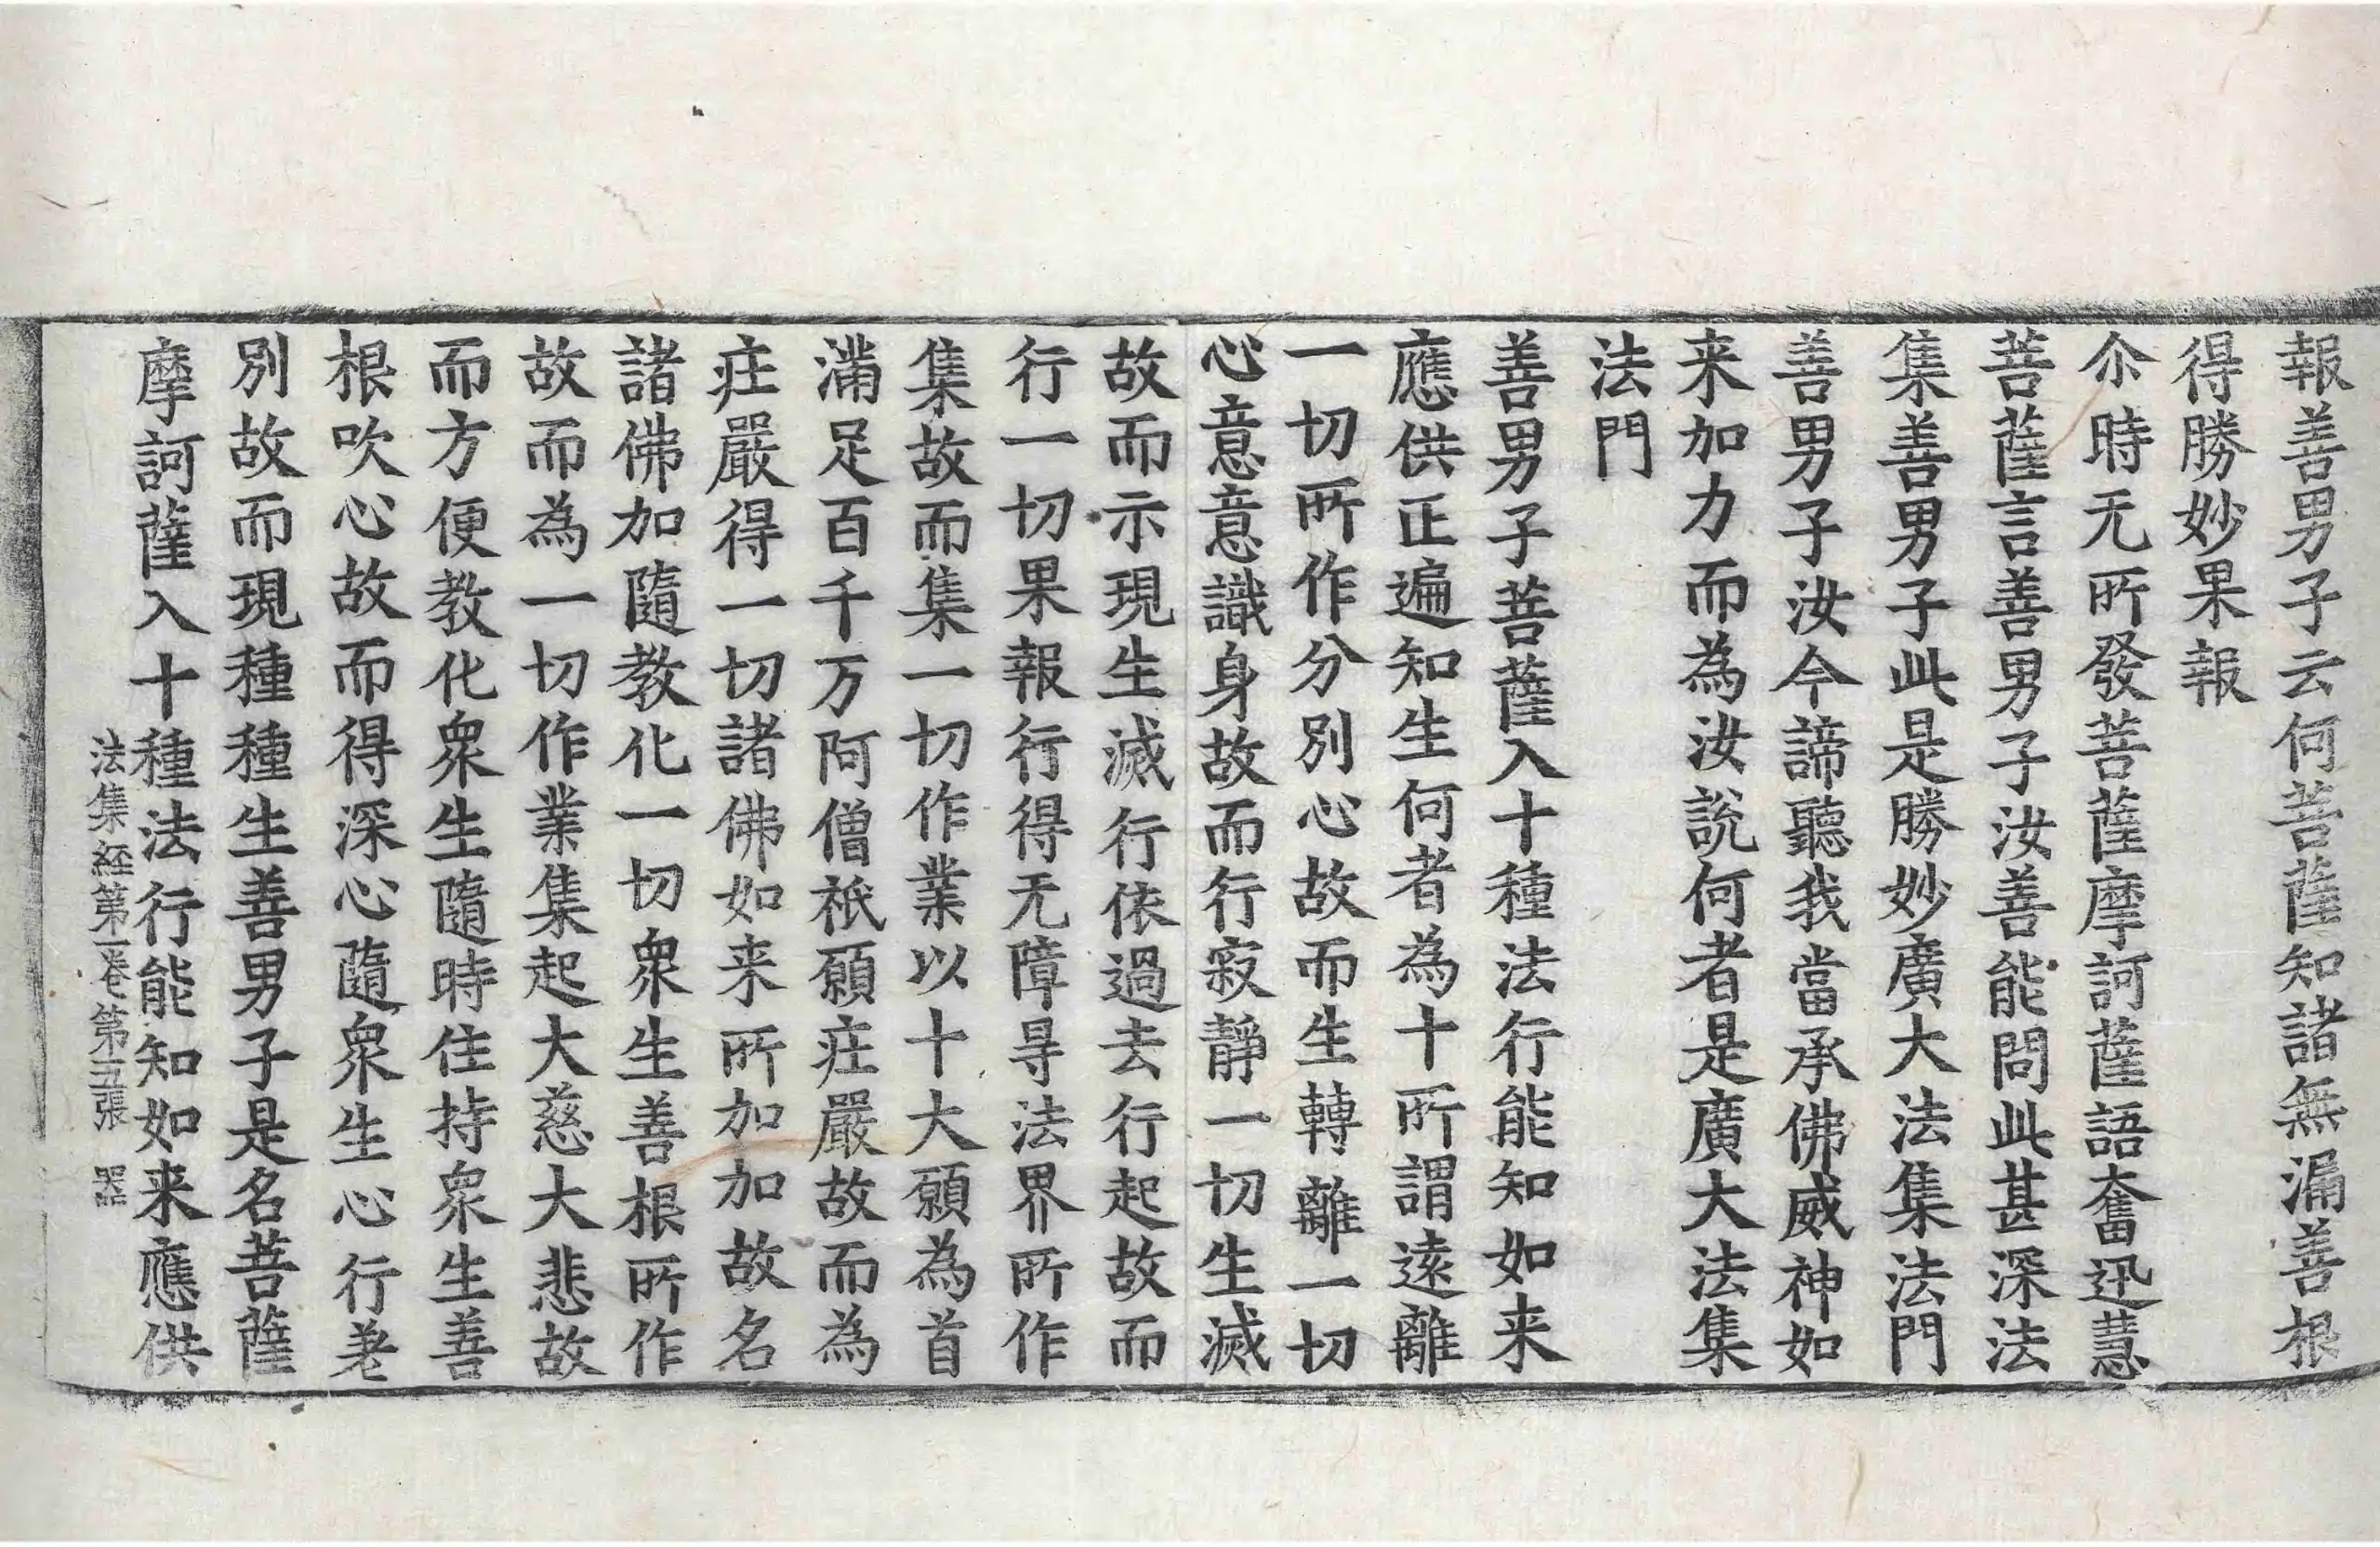 報善男子云何菩薩知諸無漏善根
得勝妙果報
尒時无所發菩薩摩訶薩語奮迅慧
菩薩言善善男子汝善能問此甚深法
集善男子此是勝妙廣大法集法門
善男子汝今諦聽我當承佛威神如
来加力而為汝說何者是廣大法集
法門
善男子菩薩入十種法行能知如来
應供正遍知生何者為十所謂遠離
一切所作分別心故而生轉離一切
心意意識身故而行寂靜一切生滅
故而示現生滅行依過去行起故而
行一切果報行得无障㝵法界所作
集故而集一切作業以十大願為首
滿足百千万阿僧祇願庄嚴故而為
庄嚴得一切諸佛如来所加加故名
諸佛加隨教化一切衆生善根所作
故而為一切作業集起大慈大悲故
而方便教化衆生隨時住持衆生善
根吹心故而得深心隨衆生心行差
別故而現種種生善男子是名菩薩
摩訶薩入十種法行能知如来應供
法集経第一卷第五張 器